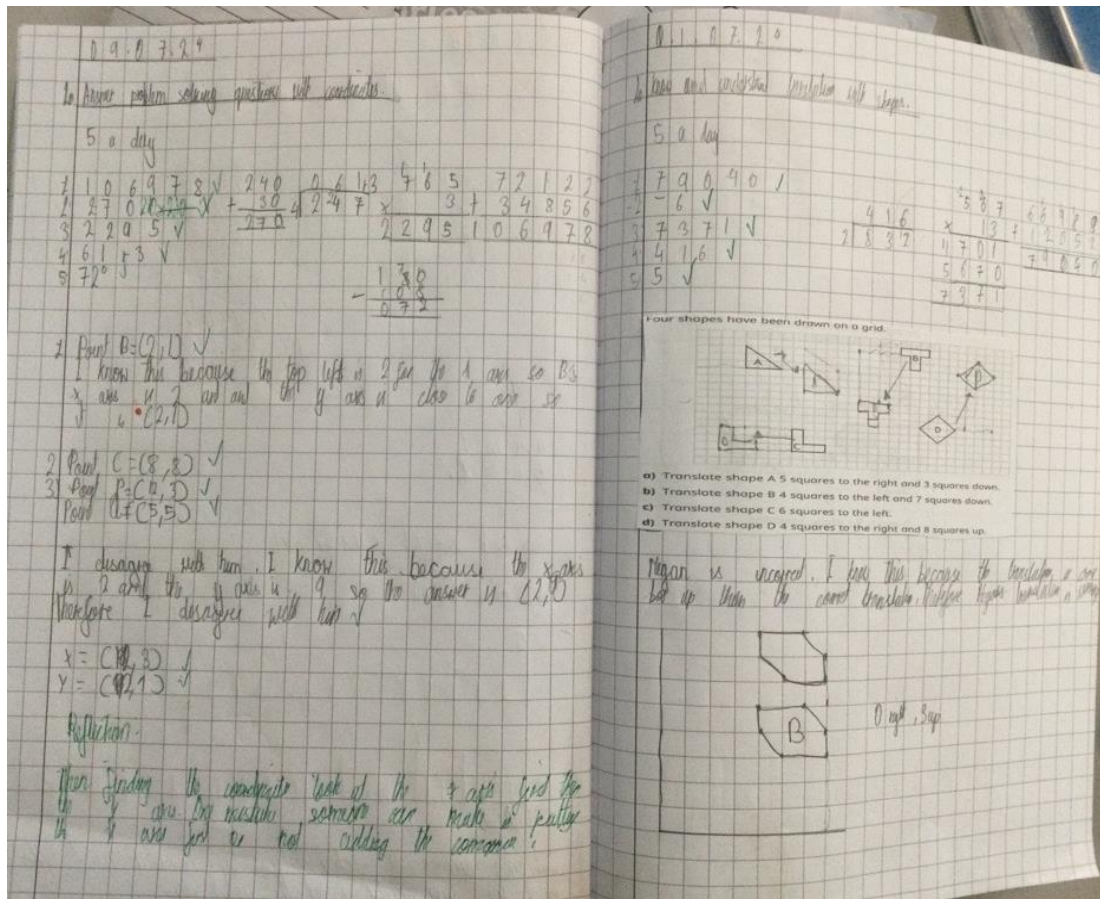 09.07.24
Lo Answer problem solving questions with coordinates.
5 a day
1 106978
2 270
3 2295
4 61 r3
5 72°
240
+ 30
270
061r3
4 247
765
x 3
2295
72122
+ 34856
106978
180
- 108
072
1 Point B=(2,1)
I know this because the top left is 2 so B's
x axis is 2 and the y axis is close to one so
(2,1)
2 Point C=(8,8)
3 Point P=(12,3)
Point Q=(5,5)
I disagree with him. I know this because the x-axis
is 2 and the y axis is 9 so the answer is (2,9)
Therefore I disagree with him
X = (12,3)
Y = (12,1)
Reflection.
When finding the coordinate look at the x axis first then
the y axis. One mistake someone can make is putting
the y axis first or not adding the comma.
01.07.2
Lo and understand translation with shapes.
5 a day
1 79040
2 -6
3 7371
4 416
5 5
416
2 832
567
x 13
1701
5670
7371
66988
+ 12052
79040
Four shapes have been drawn on a grid.
A
B
C
D
a) Translate shape A 5 squares to the right and 3 squares down.
b) Translate shape B 4 squares to the left and 7 squares down.
c) Translate shape C 6 squares to the left.
d) Translate shape D 4 squares to the right and 8 squares up.
Megan is incorrect. I know this because the translation is one
up than the correct translation. Therefore Megan's translation is wrong
B
0 right, 3 up